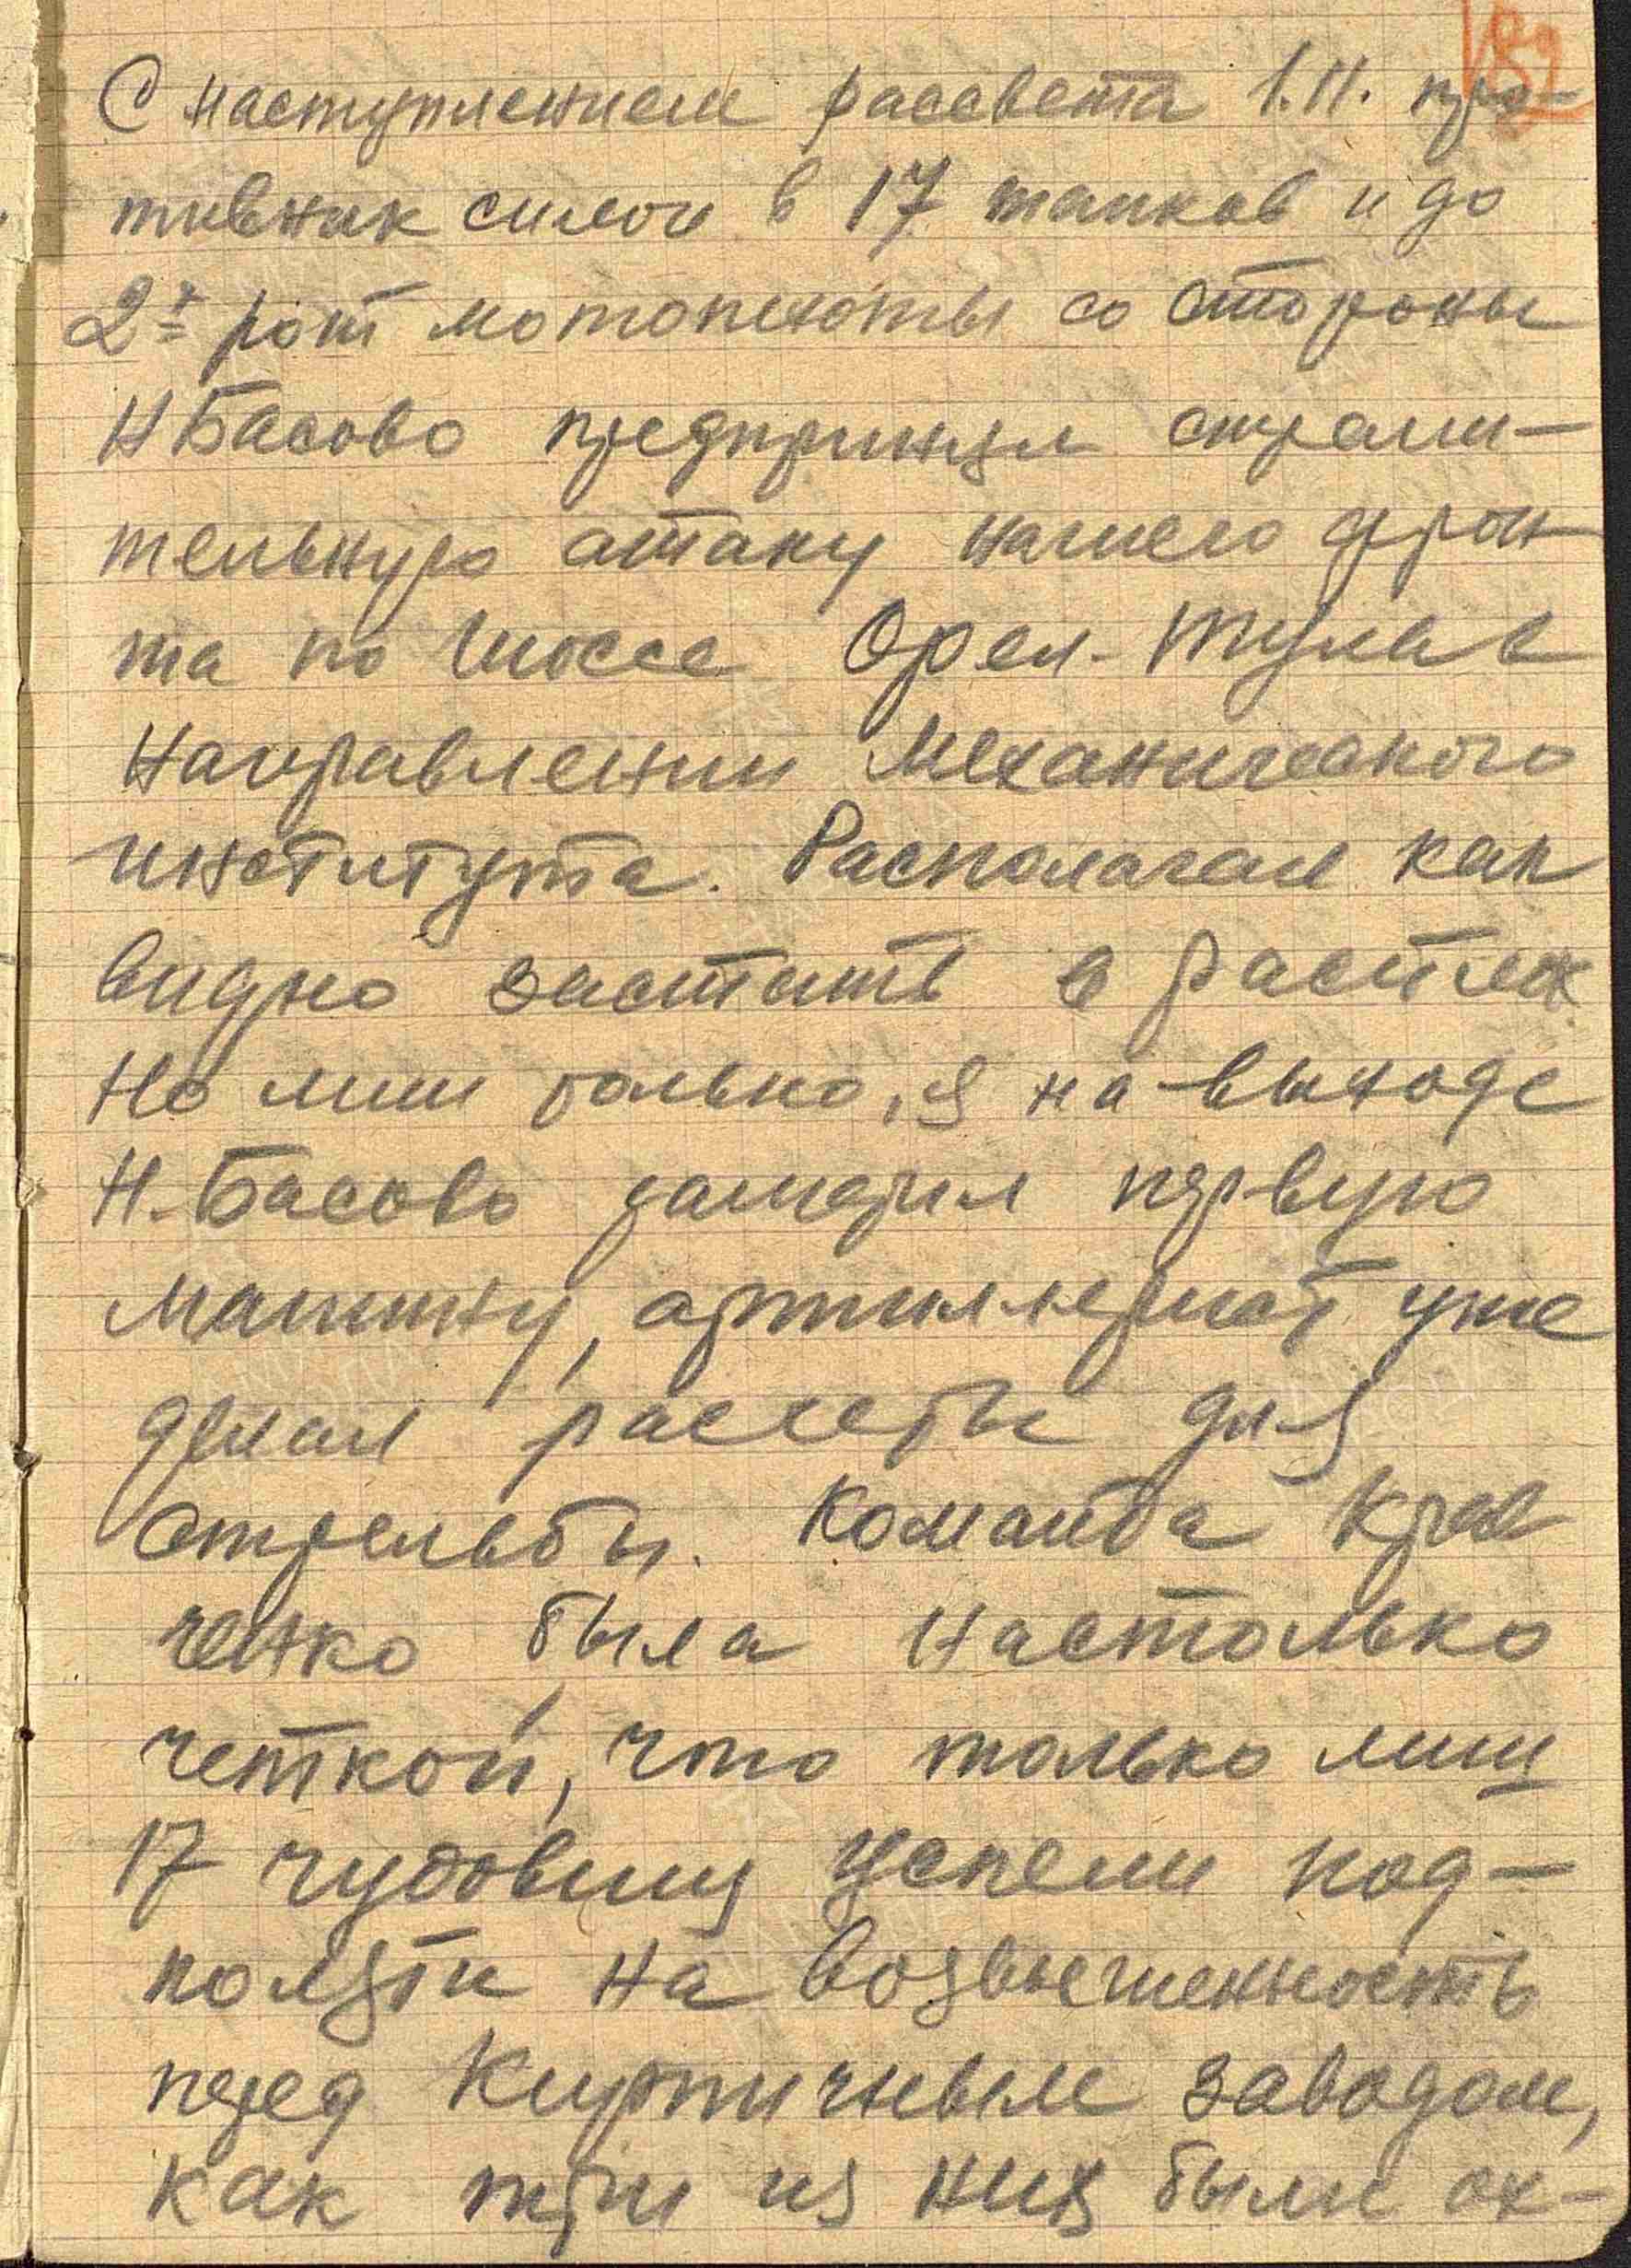 189
С наступлением рассвета 1.11. про-
тивник силой в 17 танков и до
2х рот мотопехоты со стороны
Н Басово предпринял стреми-
тельную атаку нашего фрон
та по шоссе Орел-Тула в
направлении Механического
института. Располагал как
видно застать в расплох
Но лиш только, я на выходе
Н-Басово замерил первую
машину, артиллерист уже
делал расчеты для
стрельбы. Команда Крав
ченко была настолько
четкой, что только лиш
17 чудовищ успели под-
ползти на возвышенность
перед Кирпичным заводом,
как три из них были ох-